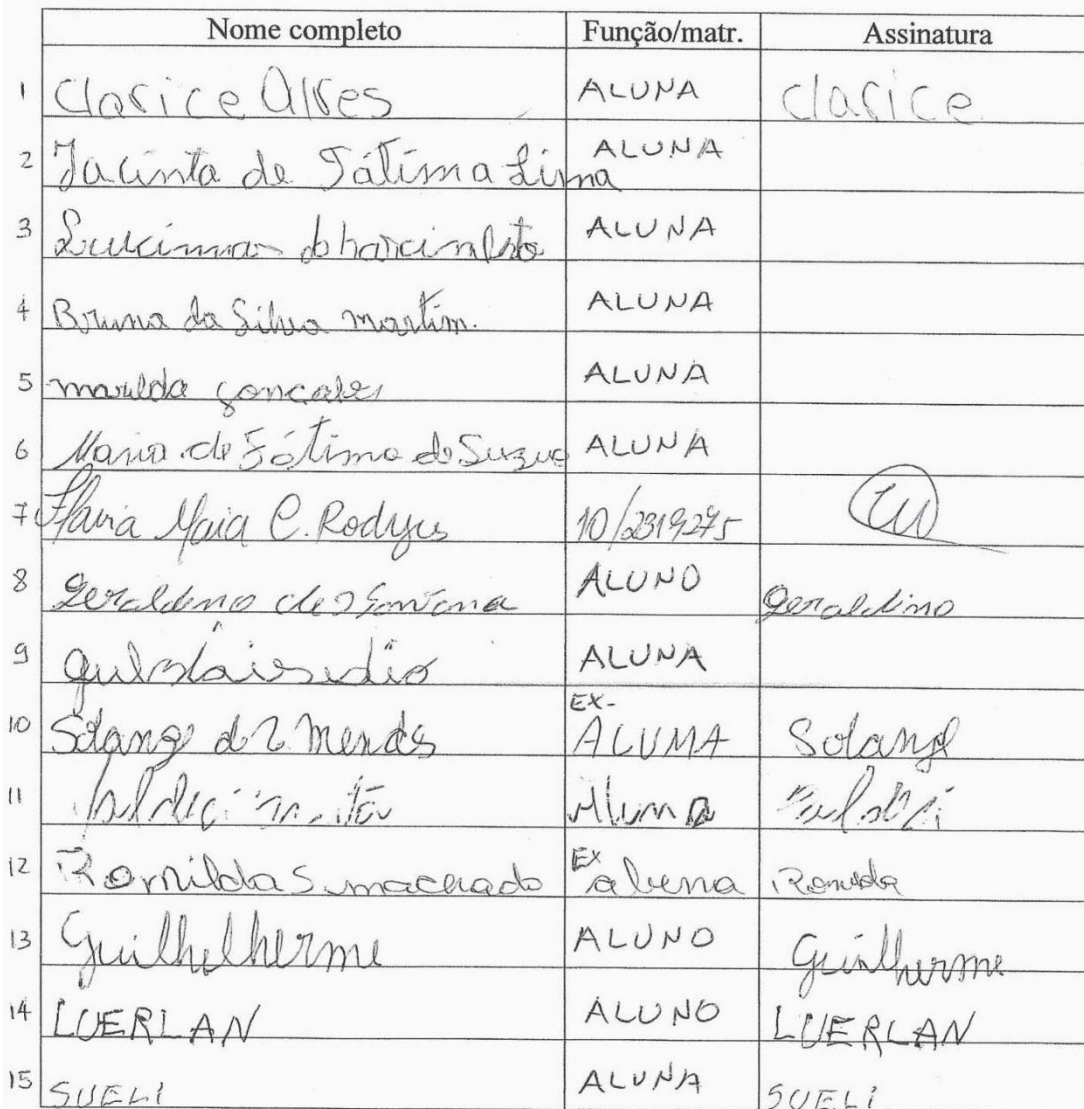 Nome completo Função/matr. Assinatura
1 Clarice Alves ALUNA Clarice
2 Jacinta de Fátima Lima ALUNA
3 ALUNA
4 Bruna da Silva Martim. ALUNA
5 marilda gonçales ALUNA
6 Maria de Fátima de Suzua ALUNA
7 Flavia Maia C. Rodrgus 10/2319275
8 Geraldino de Santana ALUNO Geraldino
9 ALUNA
10 Solange d Mendes EX-ALUMA Solange
11 Aluna
12 Romilda S machado EX aluna Romilda
13 Guilhelherme ALUNO Guinlherme
14 LUERLAN ALUNO LUERLAN
15 SUELI ALUNA SUELI